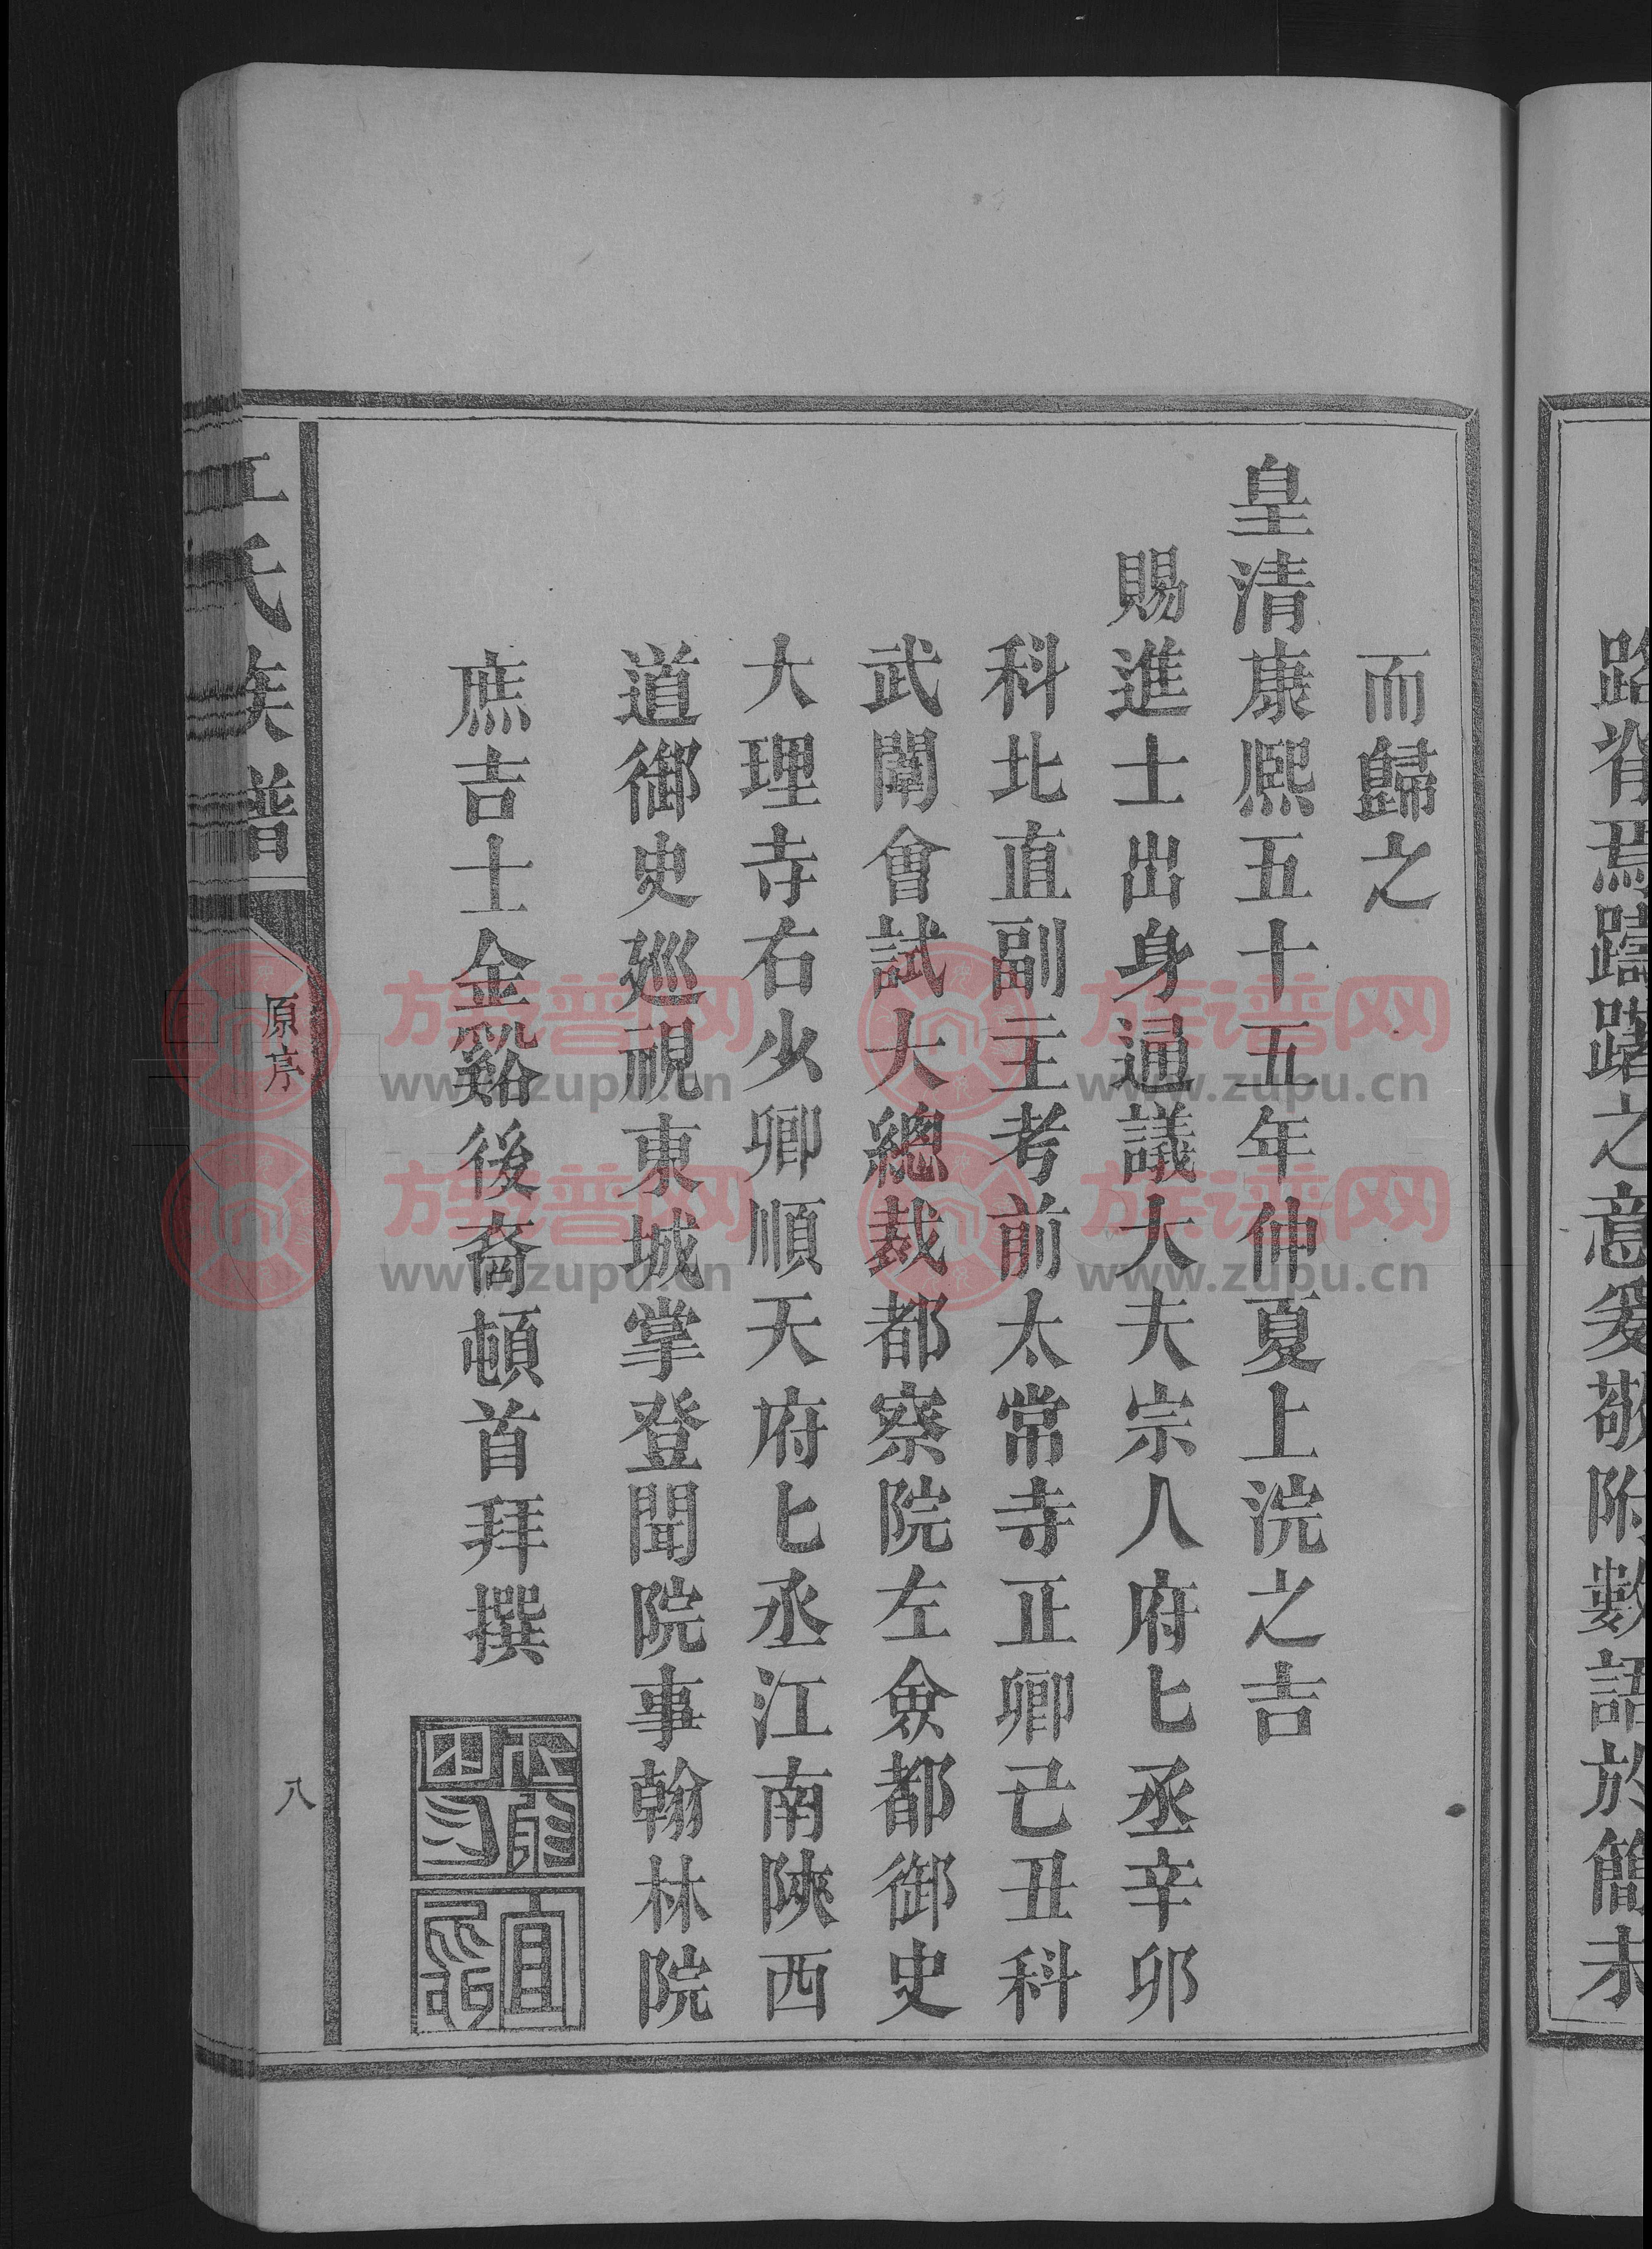 路眷焉躊躇之意爰敬附數語於簡末
而歸之
皇清康熙五十五年仲夏上浣之吉
賜進士出身通議大夫宗人府匕丞辛卯
科北直副主考前太常寺正卿己丑科
武闈會試大總裁都察院左僉都御史
大理寺右少卿順天府匕丞江南陝西
道御史廵視東城掌登聞院事翰林院
庶吉士金谿後裔頓首拜撰
江氏族譜
原序
八
族谱网 族谱网
www.zupu.cn www.zupu.cn
族谱网 族谱网
www.zupu.cn www.zupu.cn